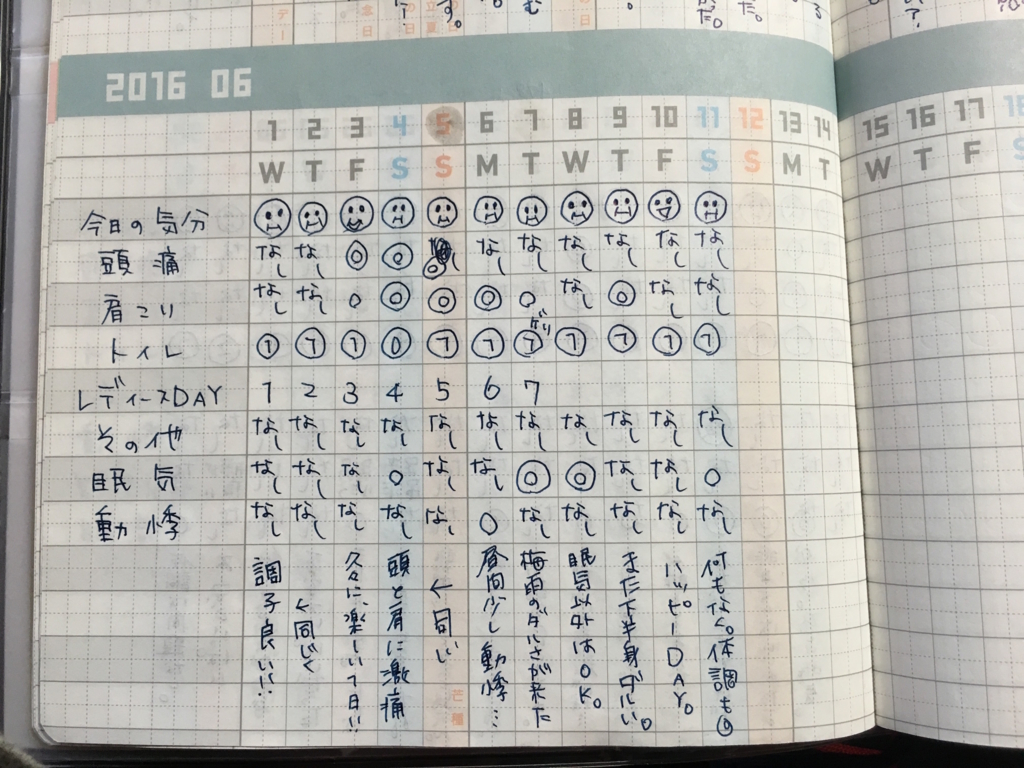 2016 06
1 2 3 4 5 6 7 8 9 10 11 12 13 14 15 16 17
W T F S S M T W T F S S M T W T F S
今日の気分
頭痛 なし なし ◎ ◎ ◎ なし なし なし なし なし なし
肩こり なし なし ○ ◎ ◎ ◎ ○ なし ◎ なし なし
ゲリ
トイレ 1 1 1 0 1 1 1 1 1 1 1
レディースDAY 1 2 3 4 5 6 7
その他 なし なし なし なし なし なし なし なし なし なし なし
眠気 なし なし なし ○ なし なし ◎ ◎ なし なし ○
動悸 なし なし なし なし なし ○ なし なし なし なし なし
調子良い!!
←同じく
久々に、楽しい1日!!
頭と肩に激痛
←同じ
芒種
昼間少し動悸…
梅雨のダルさが来た
眠気以外はOK。
まだ下半身ダルい。
ハッピーDAY。
何もなく。体調も◎